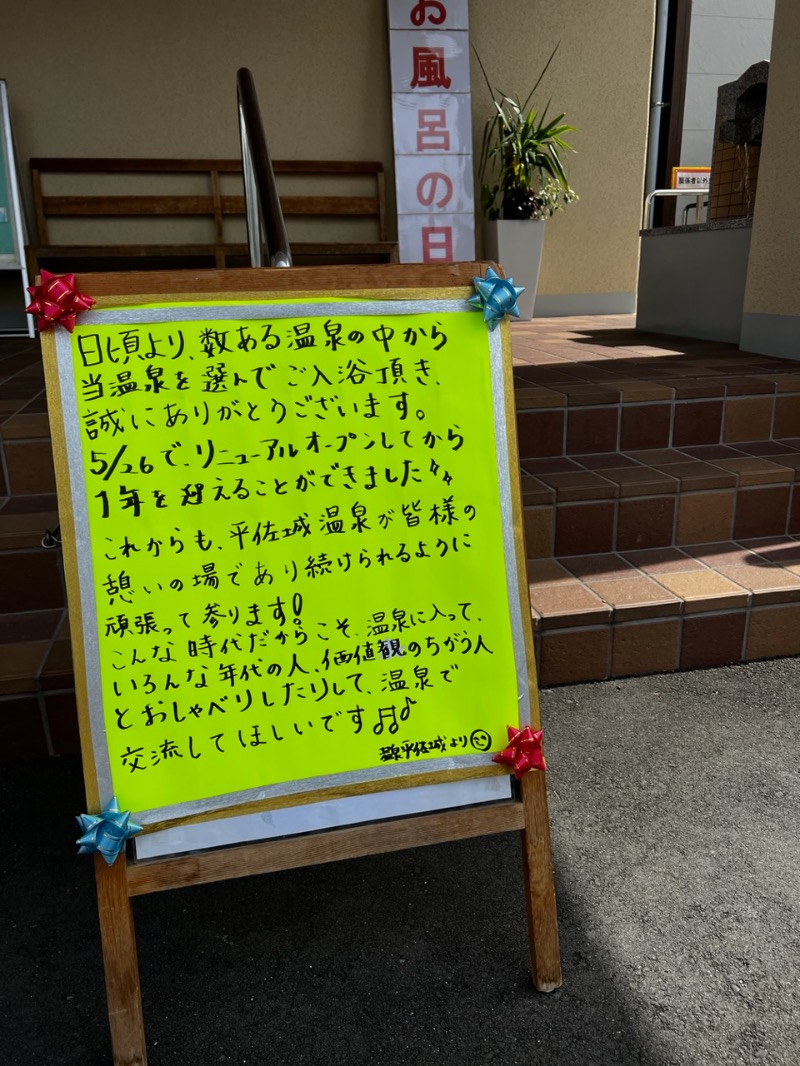 お風呂の日
関係者以外
日頃より、数ある温泉の中から
当温泉を選んでご入浴頂き、
誠にありがとうございます。
5/26で、リニューアルオープンしてから
1年を超えることができました
これからも、平佐城温泉が皆様の
憩いの場であり続けられるように
頑張って参ります!
こんな時代だからこそ、温泉に入って、
いろんな年代の人、価値観のちがう人
とおしゃべりしたりして、温泉で
交流してほしいです♫♪
温泉平佐城より